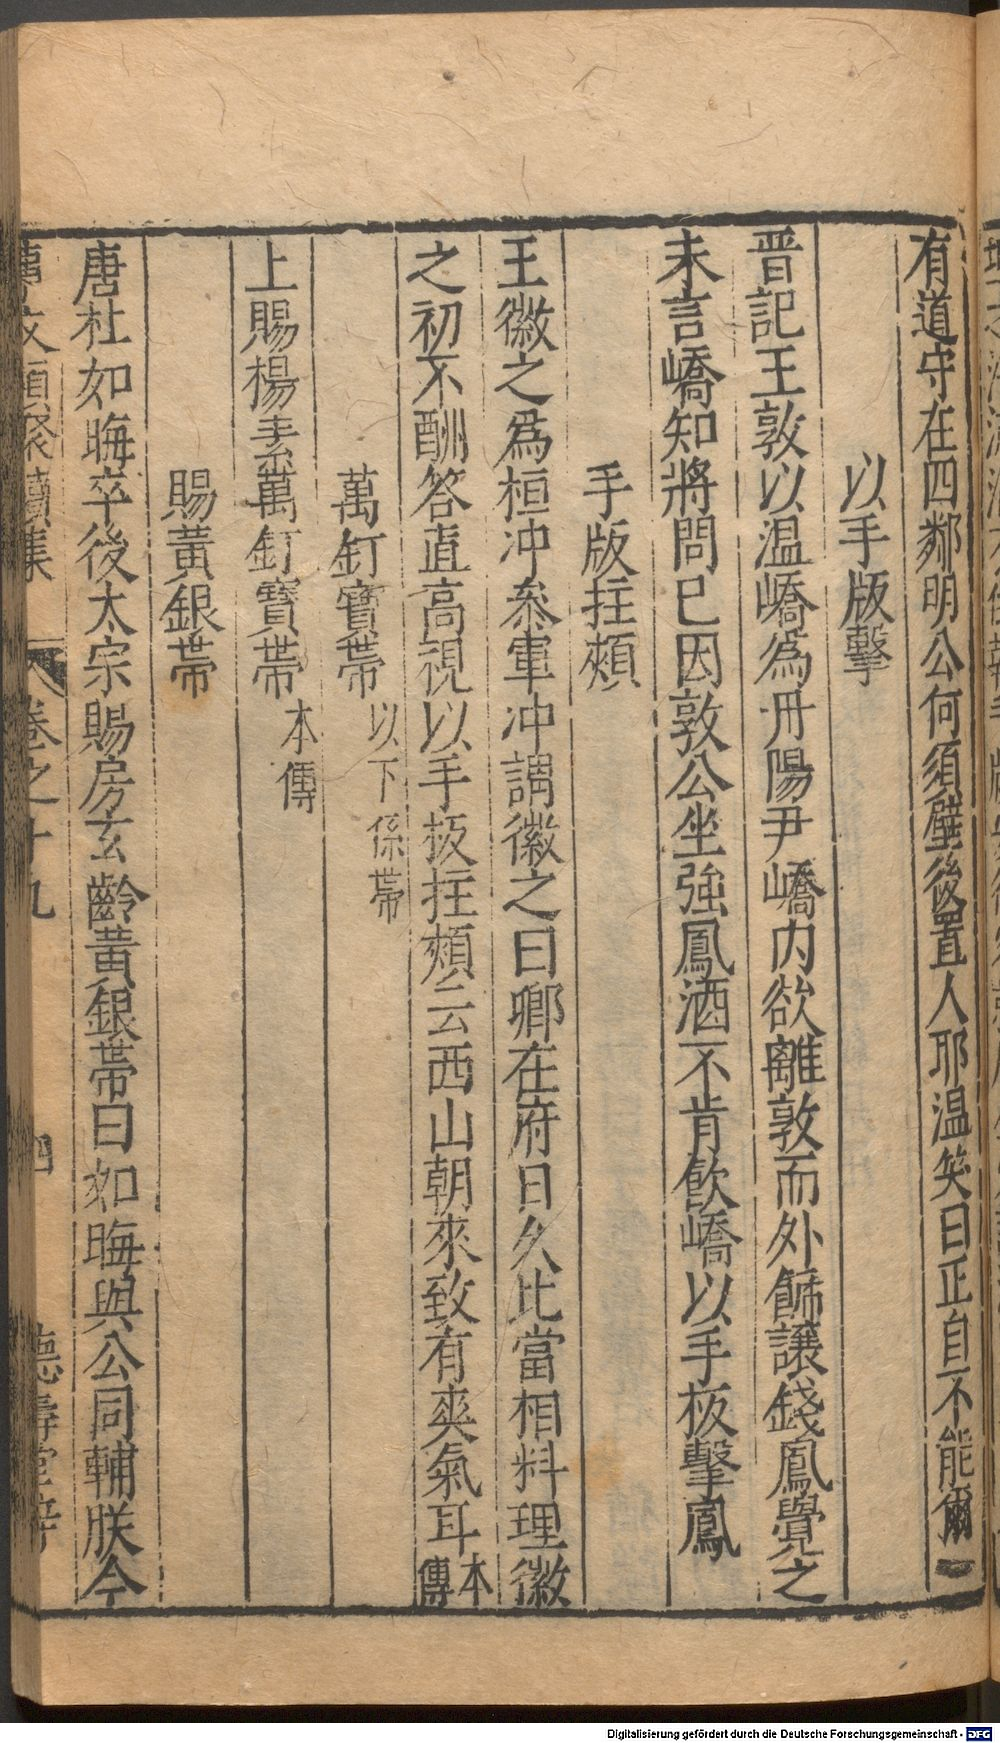 有道守在四鄰明公何須壁後置人耶温笑曰正自不能爾
以手版擊
晋記王敦以温嶠爲丹陽尹嶠内欲離敦而外餙讓錢鳳覺之
未言嶠知將問已因敦公坐強鳳酒不肯飲嶠以手板擊鳳
手版拄頰
王徽之爲桓冲叅軍冲謂徽之曰卿在府日久比當相料理徽
之初不酬答直高視以手板拄頰云西山朝來致有爽氣耳本傳
萬釘寳帶以下係帶
上賜楊素萬釘寳帶本傳
賜黃銀帶
唐杜如晦卒後太宗賜房玄齡黃銀帶曰如晦與公同輔朕今
卷之十九
四
Digitalisierung gefördert durch die Deutsche Forschungsgemeinschaft - DFG